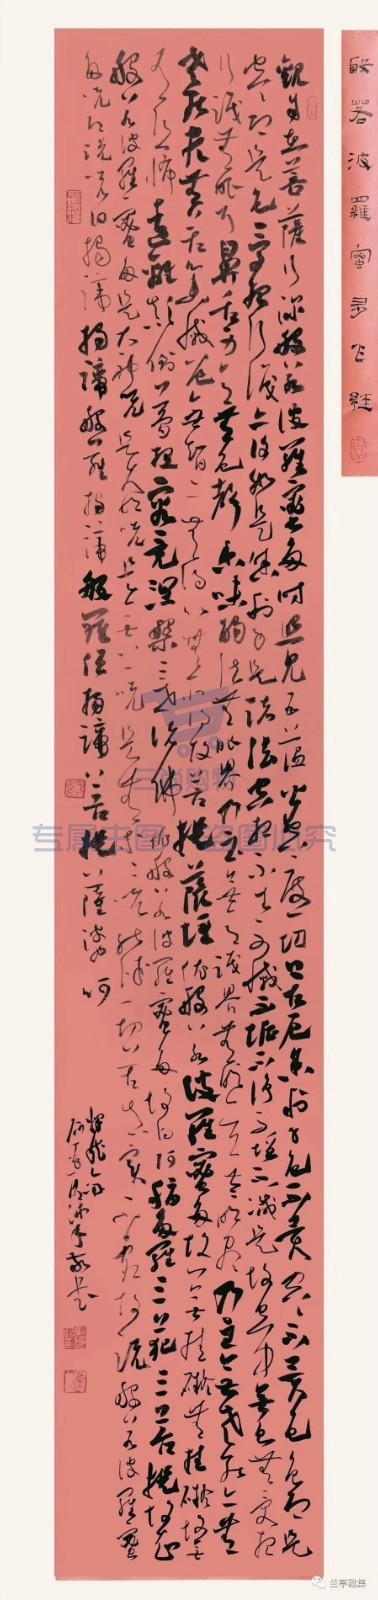 般若波羅蜜多心經
觀自在菩薩行深般若波羅蜜多時照見五蘊皆空度一切苦厄舍利子色不異空空不異色色即是
空空即是色受想行識亦復如是舍利子是諸法空相不生不滅不垢不淨不增不減是故空中無色無受想
行識無眼耳鼻舌身意無色聲香味觸法無眼界乃至無意識界無無明亦無無明盡乃至無老死亦無
老死盡無苦集滅道無智亦無得以無所得故菩提薩埵依般若波羅蜜多故心無罣礙無罣礙故無
有恐怖遠離顛倒夢想究竟涅槃三世諸佛依般若波羅蜜多故得阿耨多羅三藐三菩提故知
般若波羅蜜多是大神咒是大明咒是無上咒是無等等咒能除一切苦真實不虛故說般若波羅蜜
多咒即說咒曰揭諦揭諦般羅揭諦般羅僧揭諦菩提薩婆訶
兰亭雅集